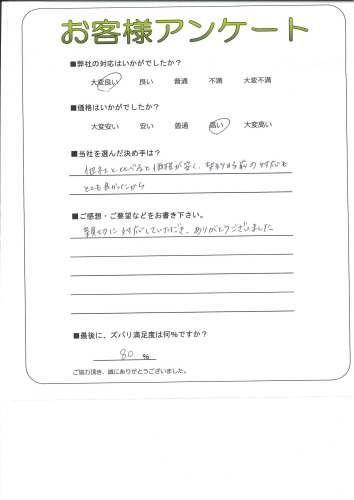 お客様アンケート
■弊社の対応はいかがでしたか？
大変良い 良い 普通 不満 大変不満
■価格はいかがでしたか？
大変安い 安い 普通 高い 大変高い
■当社を選んだ決め手は？
他社と比べると価格が安く、契約する前の対応も
とても良かったから
■ご感想・ご要望などをお書き下さい。
親切に対応していただき、ありがとうございました
■最後に、ズバリ満足度は何%ですか？
80 %
ご協力頂き、誠にありがとうございました。